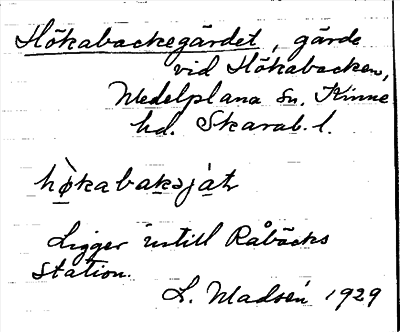 Hökabackegärdet, gärde
vid Hökabacken,
Medelplana sn. Kinne
hd. Skarab. l.
hø̀kabakəjáṭ
Ligger intill Råbäcks
Station.
L. Madsén 1929